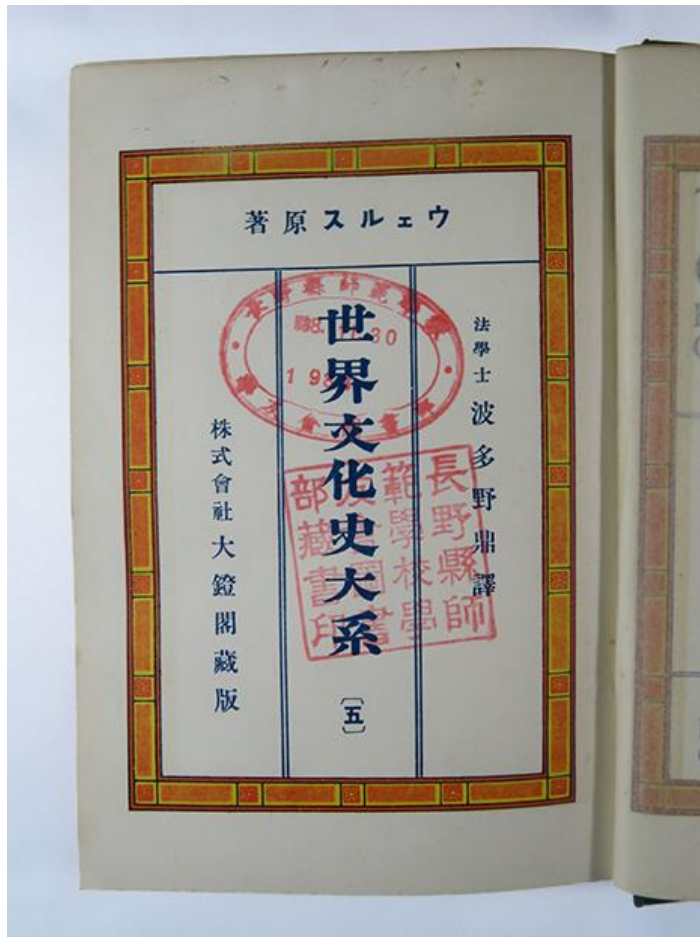 ウェルス原著
法學士 波多野鼎譯
世界文化史大系
〔五〕
株式會社 大鐙閣藏版
長野縣師
範學校學
部藏書印
30